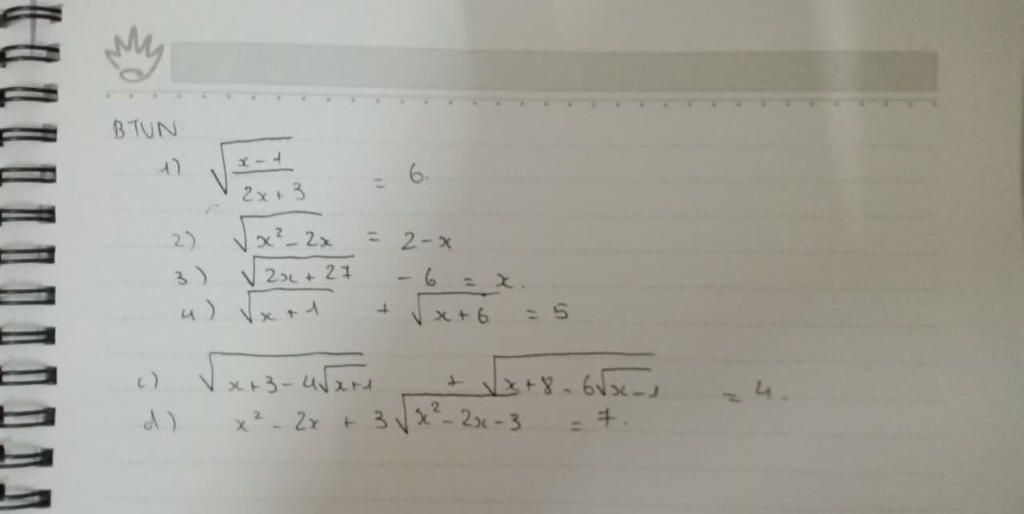 BTVN
1) √((x-1)/(2x+3)) = 6.
2) √(x²-2x) = 2-x
3) √(2x+27) - 6 = x.
4) √(x+1) + √(x+6) = 5
c) √(x+3-4√(x+1)) + √(x+8-6√(x-1)) = 4.
d) x² - 2x + 3√(x²-2x-3) = 7.